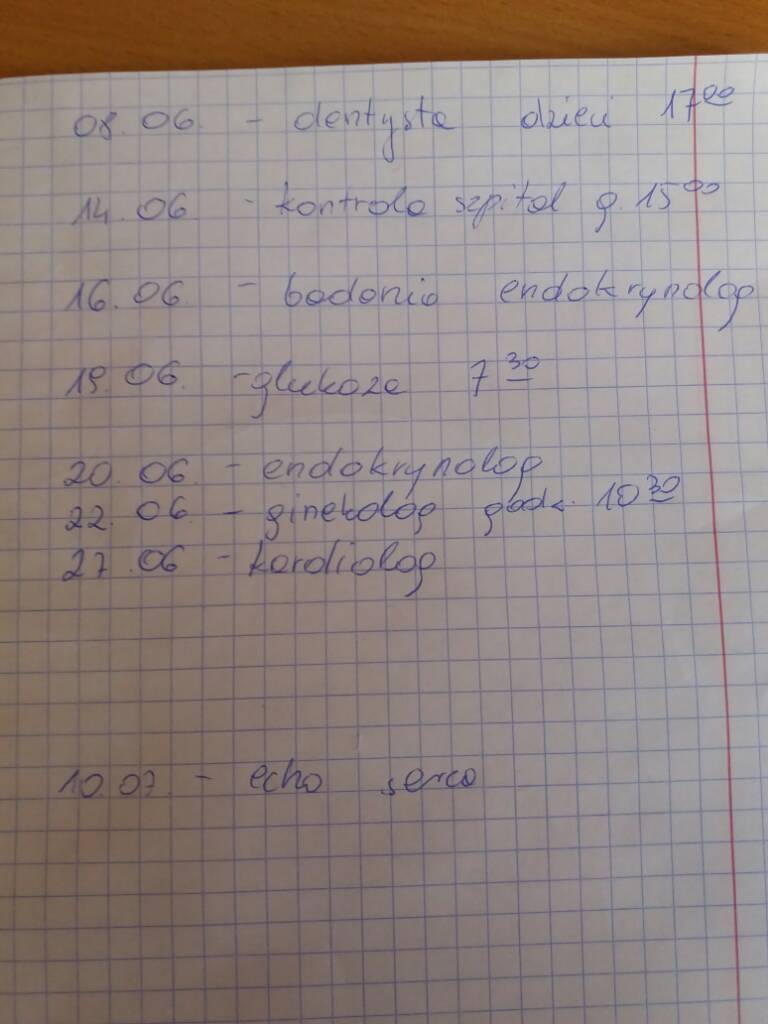 08.06. - dentysta dzieci 17⁰⁰
14.06 - kontrola szpital g. 15⁰⁰
16.06. - badania endokrynolog
19.06. - glukoza 7³⁰
20.06. - endokrynolog
22.06 - ginekolog godz. 10³⁰
27.06 - kardiolog
10.07. - echo serca